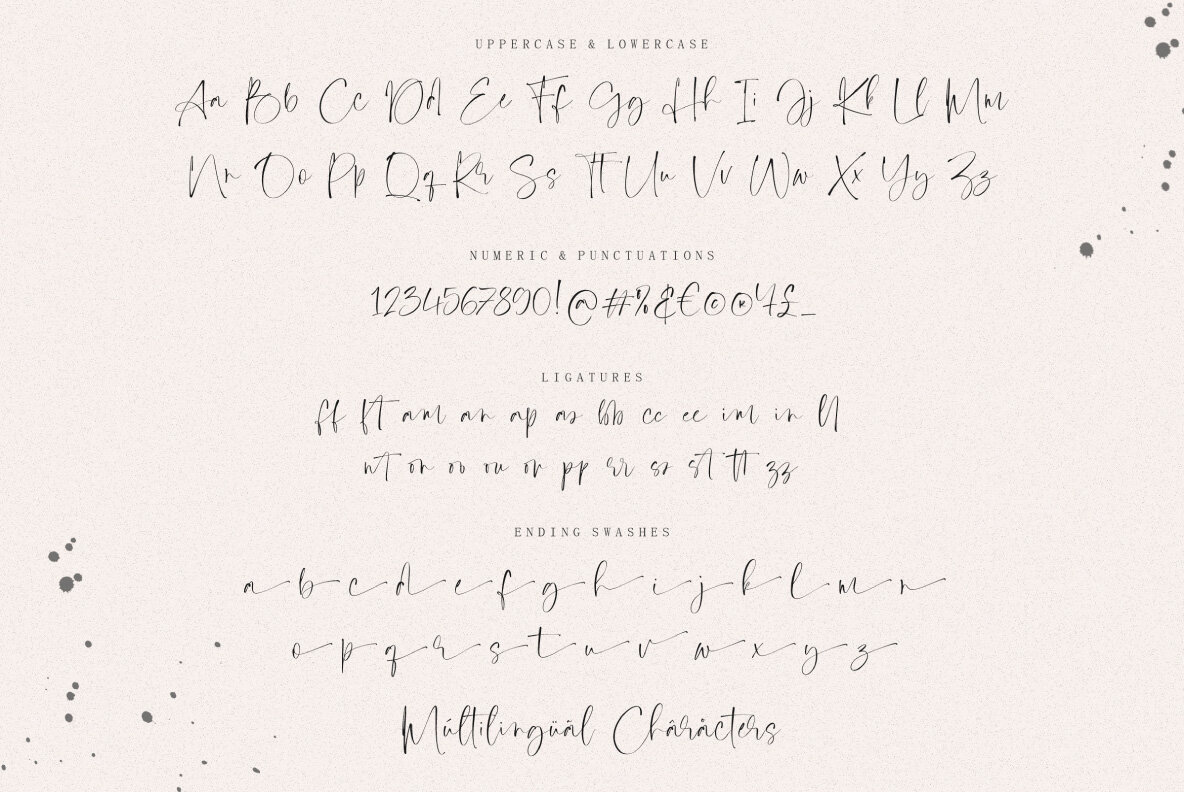 UPPERCASE & LOWERCASE
Aa Bb Cc Dd Ee Ff Gg Hh Ii Jj Kk Ll Mm
Nn Oo Pp Qq Rr Ss Tt Uu Vv Ww Xx Yy Zz
NUMERIC & PUNCTUATIONS
1234567890!@#%&€©®¥£_
LIGATURES
ff ft am an ap as bb cc ee im in ll
nt on oo ou or pp rr ss st tt zz
ENDING SWASHES
a b c d e f g h i j k l m n
o p q r s t u v w x y z
Múltilingüãl Châråcters